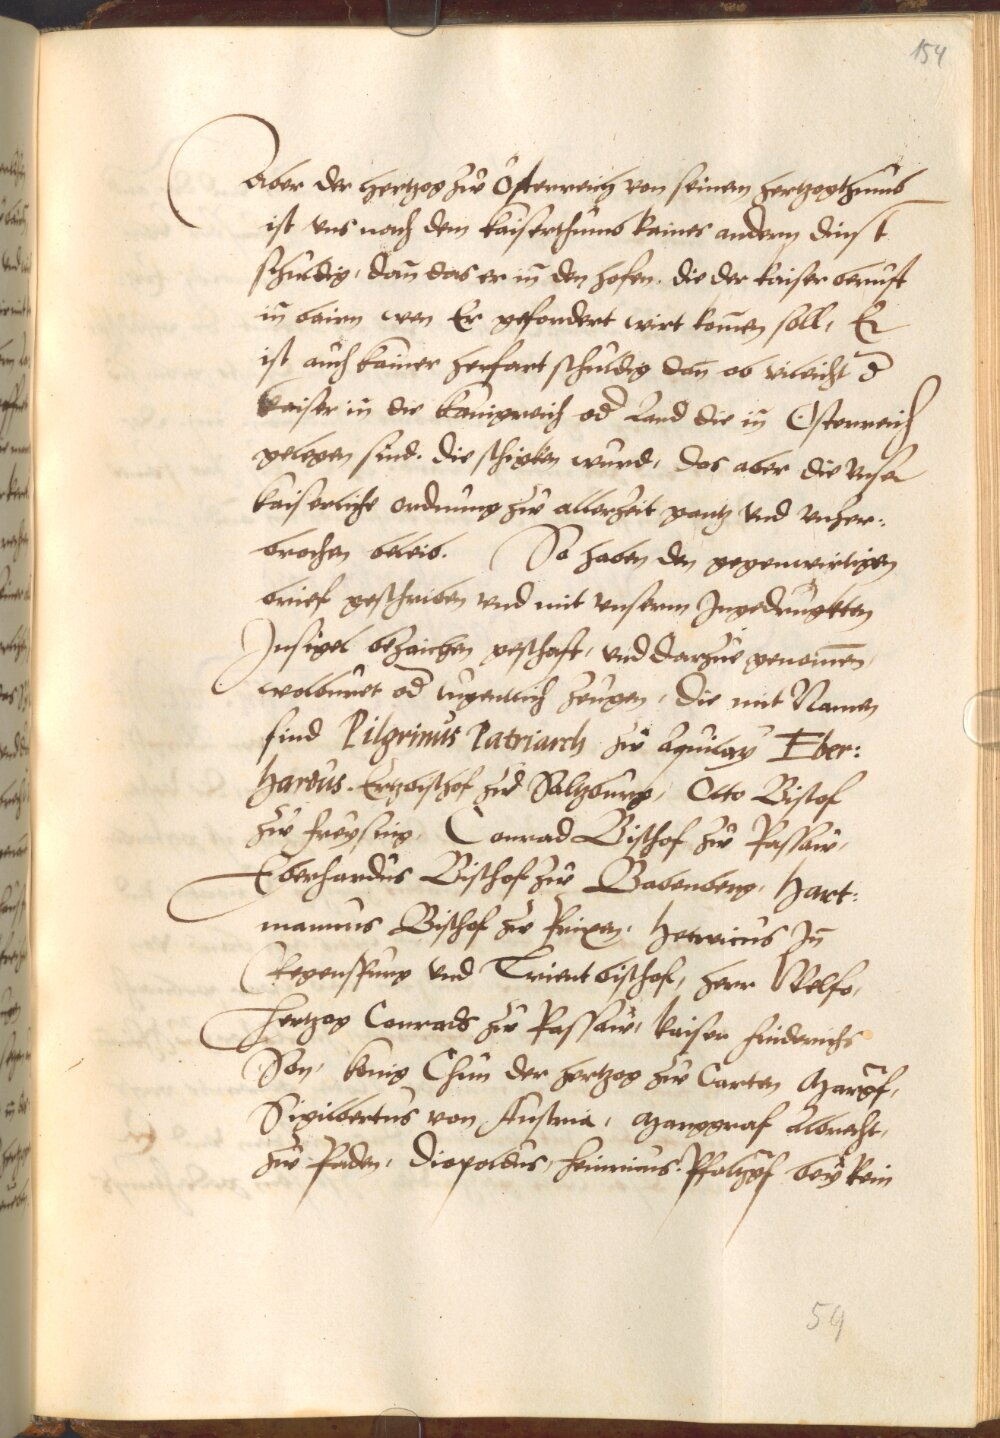 154
Aber der hertzog zu Österreich von seinem hertzogthumb
ist vns nach dem kaiserthumb kaines andern dinst
schuldig, dan̄ das er in̄ den hofen. die der kaiser berufft
in̄ bairn wen Er gefordert wirt kom̄en soll, Er
ist auch kainer herfart schuldig dan̄ ob vileicht d
kaiser in̄ die kunigreich od Land die in̄ Osterreich
gelegen sind. die schigken wurd, das aber die vnser
kaiserliche ordnung zu allerzeit gantz vnd vnzer:
brochen beleib. So haben den gegenwirtigen
brief geschriben vnd mit vnserm Ingedrugkten
Insigel bezaichen geschafft, vnd darzue genom̄en,
wolburet od tugentlich zeugen, die mit Namen
sind Pilgrimus Patriarch zu Aquilay Eber:
hardus. Ertzbischof zu Saltzburg, Otto Bischof
zu freysing, Conrad Bischof zu Passaw,
Eberhardus Bischof zu Babenberg, Hart:
mannus Bischof zu Prixen, Hetwicus In̄
Regenspurg vnd Trient bischof, herr Welfo,
Hertzog Conrads zu Passaw, kaiser friderichs
Son, konig Chun der hertzog zu Carten Margf,
Sigilbertus von Austria, Marggraf Albrecht,
zu Paden, Diopoldus, heinricus Pfaltzgf bey Rein
59